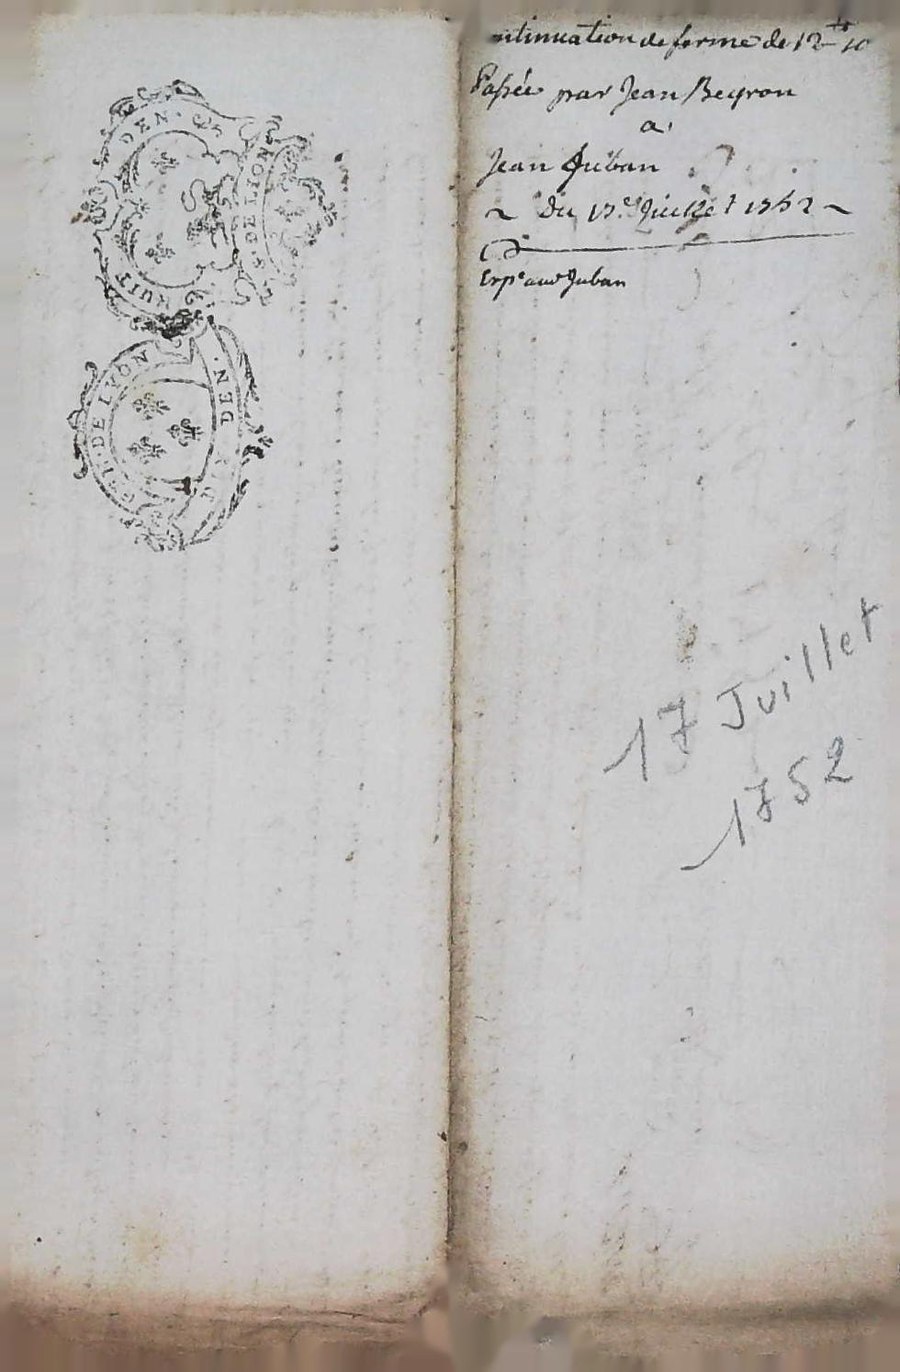 DEN.
HUIT
G. DE LION
G. DE LYON
DEN.
ntinuation de ferme de 12 ₶ 10
Passée par Jean Beyron
a
Jean Juban
~ Du 17.e Juillet 1752 ~
Exp.e aud Juban
17 Juillet
1752